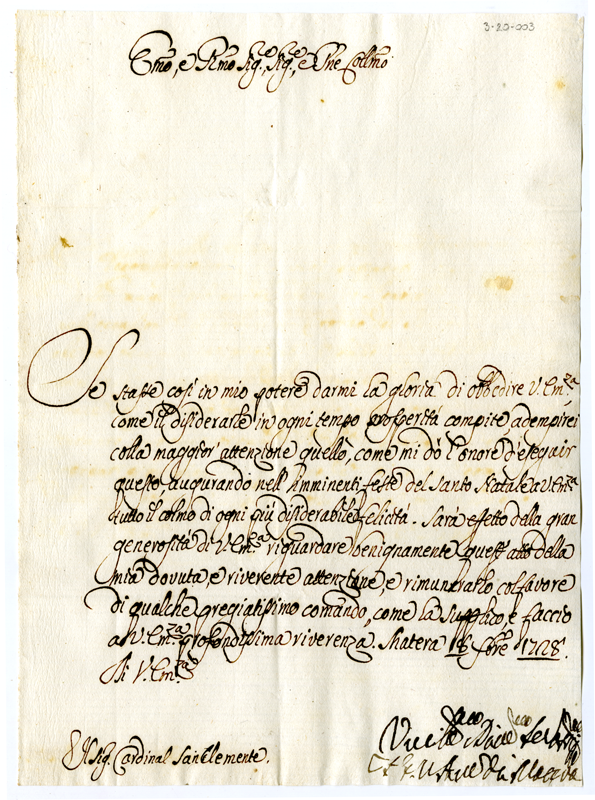 3-20-003
Emo, e Rmo Sig.e, Sig.e, e Pne Collmo
Se stasse così in mio potere darmi la gloria di obbedire V. Em.za
come il disiderarle in ogni tempo prosperità compite adempirei
colla maggior' attenzione quello, come mi dó l'onore d'eseguir
questo, augurando nell'Imminenti feste del Santo Natale a V. Em.a
tutto il colmo di ogni più disiderabile felicità. Sarà effetto della gran
generosità di V. Em.a riguardare benignamente quest' atto della
mia dovuta, e riverente attenzione, e rimunerarlo col favore
di qualche pregiatissimo comando, come la Supplico, e faccio
a V. Em.za profondissima riverenza. Matera 18 1728.
Di V. Em.za
Sig. Cardinal SanClemente.